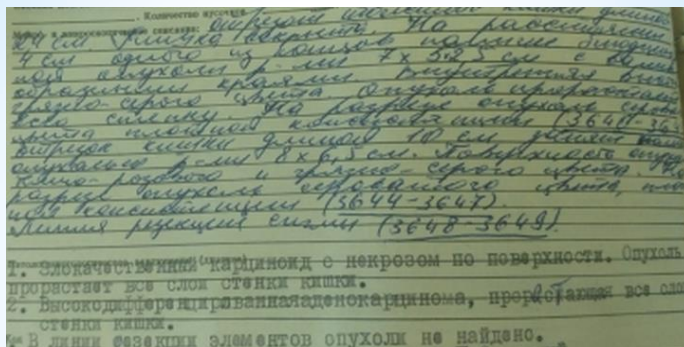 Количество кусочков
Метод и макроскопическое описание: отрезок кишки длиной
24 см. Кишка вскрыта. На расстоянии
4 см одного из концов
опухоли р-ми 7х5х2,5 см с
образными краями. Внутренняя
грязно-серого цвета опухоль прорастает
всю стенку. На разрезе опухоль серого
цвета плотной консистенции (3640-364
отрезок кишки длиной 18 см
опухолью р-ми 8х6,5 см. Поверхность
розового и грязно-серого цвета. На
разрезе опухоль сероватого цвета, плот
ной консистенции (3644-3647).
Линия резекции сигмы (3648-3649).
1. Злокачественный карциноид с некрозом по поверхности. Опухоль
прорастает все слои стенки кишки.
2. Высокодифференцированнаяаденокарцинома, прорастающая все слои
стенки кишки.
В линии резекции элементов опухоли не найдено.